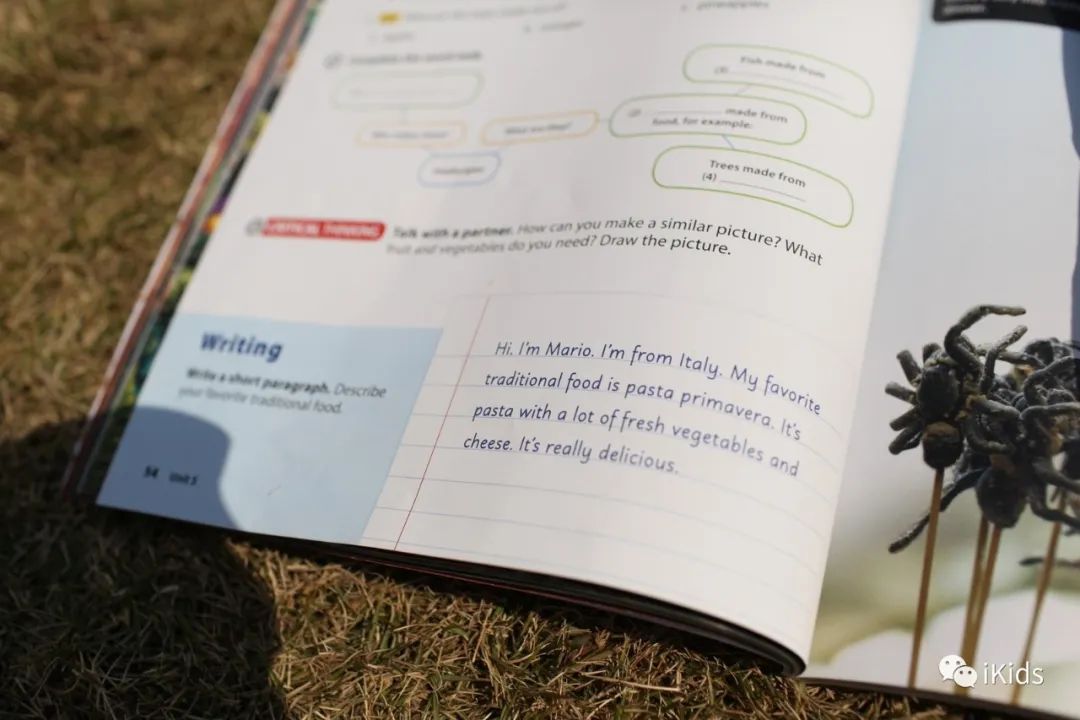 pineapples
Fish made from
(3)
made from
food, for example:
Trees made from
(4)
CRITICAL THINKING Talk with a partner. How can you make a similar picture? What
fruit and vegetables do you need? Draw the picture.
Writing
Write a short paragraph. Describe
your favorite traditional food.
Hi. I'm Mario. I'm from Italy. My favorite
traditional food is pasta primavera. It's
pasta with a lot of fresh vegetables and
cheese. It's really delicious.
54 Unit 5
iKids